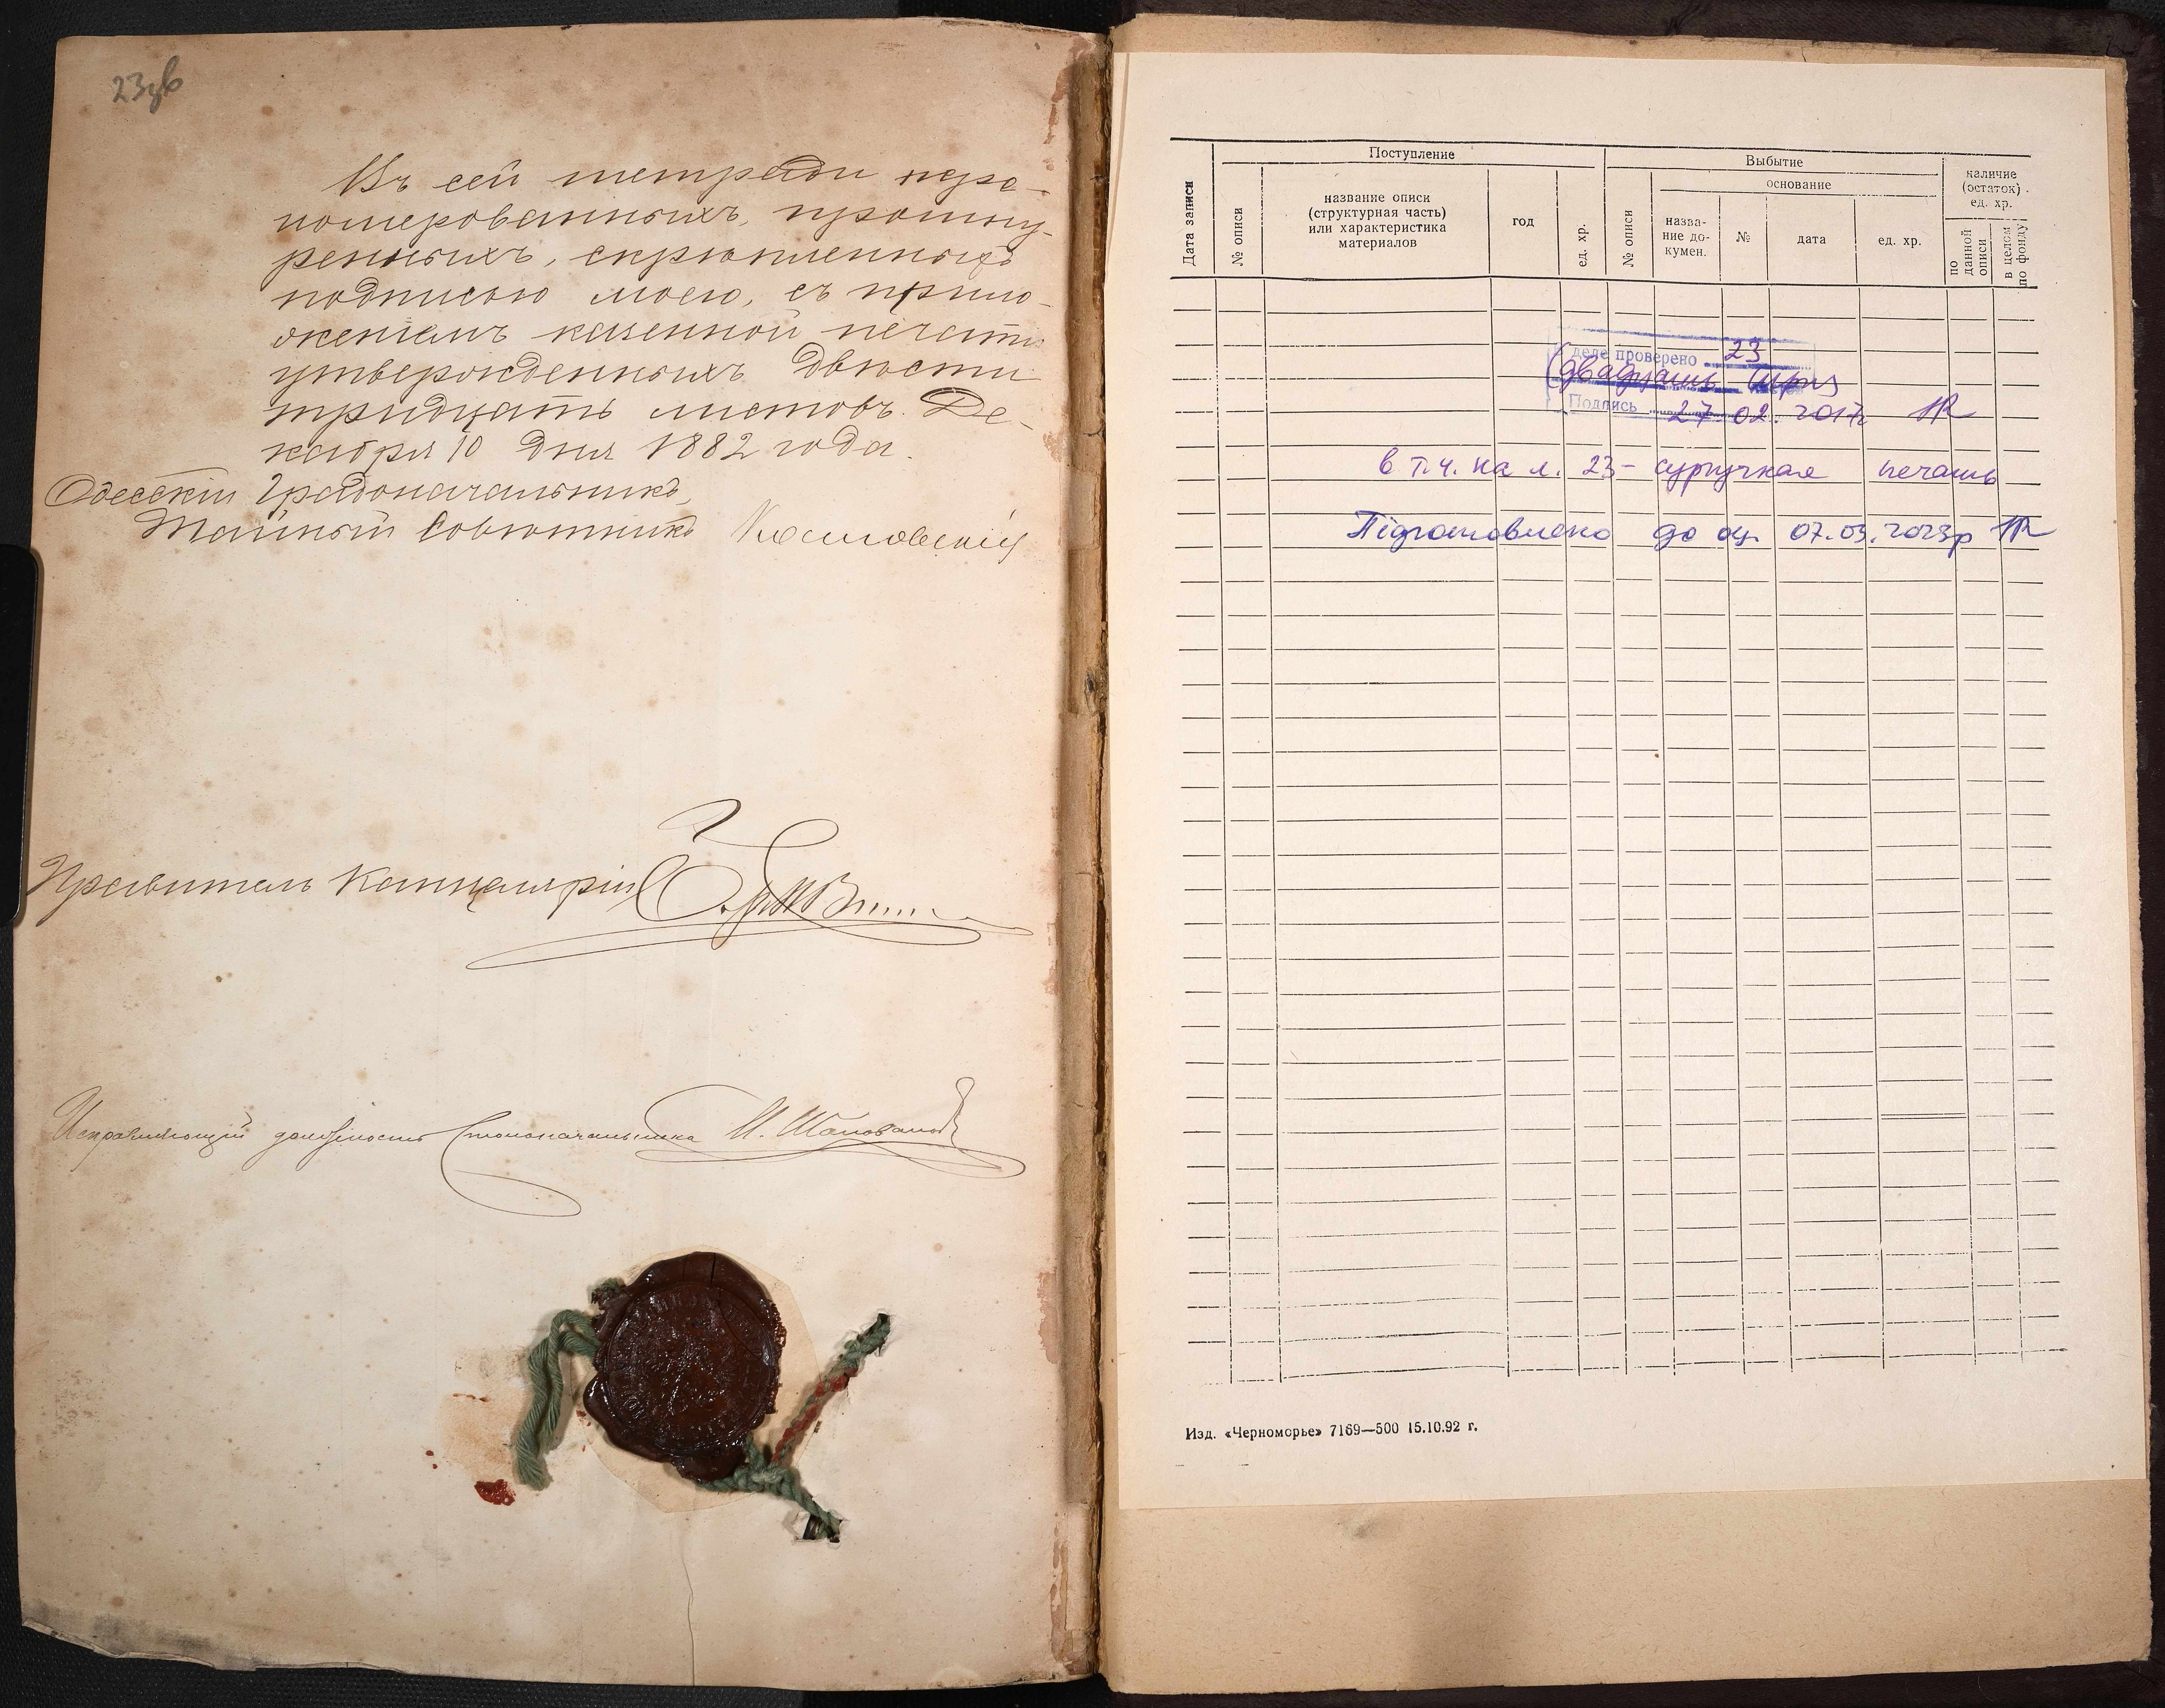 23зв
Въ сей тетради пере-
номерованныхъ, прошну-
ренныхъ, скрѣпленныхъ
подписью моею, съ прило-
женіемъ казенной печати
утвержденныхъ двѣсти
тридцать листовъ. Де-
кабря 10 дня 1882 года.
Одесскій Градоначальникъ,
Тайный Совѣтникъ Косаговскій
Правитель Канцеляріи
Исправляющій должность Столоначальника И. Шаповалов
Поступление
Выбытие
наличие (остаток) ед. хр.
основание
Дата записи
№ описи
название описи
(структурная часть)
или характеристика
материалов
год
ед. хр.
№ описи
назва-
ние до-
кумен.
№
дата
ед. хр.
по данной описи
в целом по фонду
деле проверено 23
(двадцать три)
Подпись 27.02.2017г
в т.ч. на л. 23 - сургучная печать
Підготовлено до оц. 07.03.2023р
Изд. «Черноморье» 7169—500 15.10.92 г.